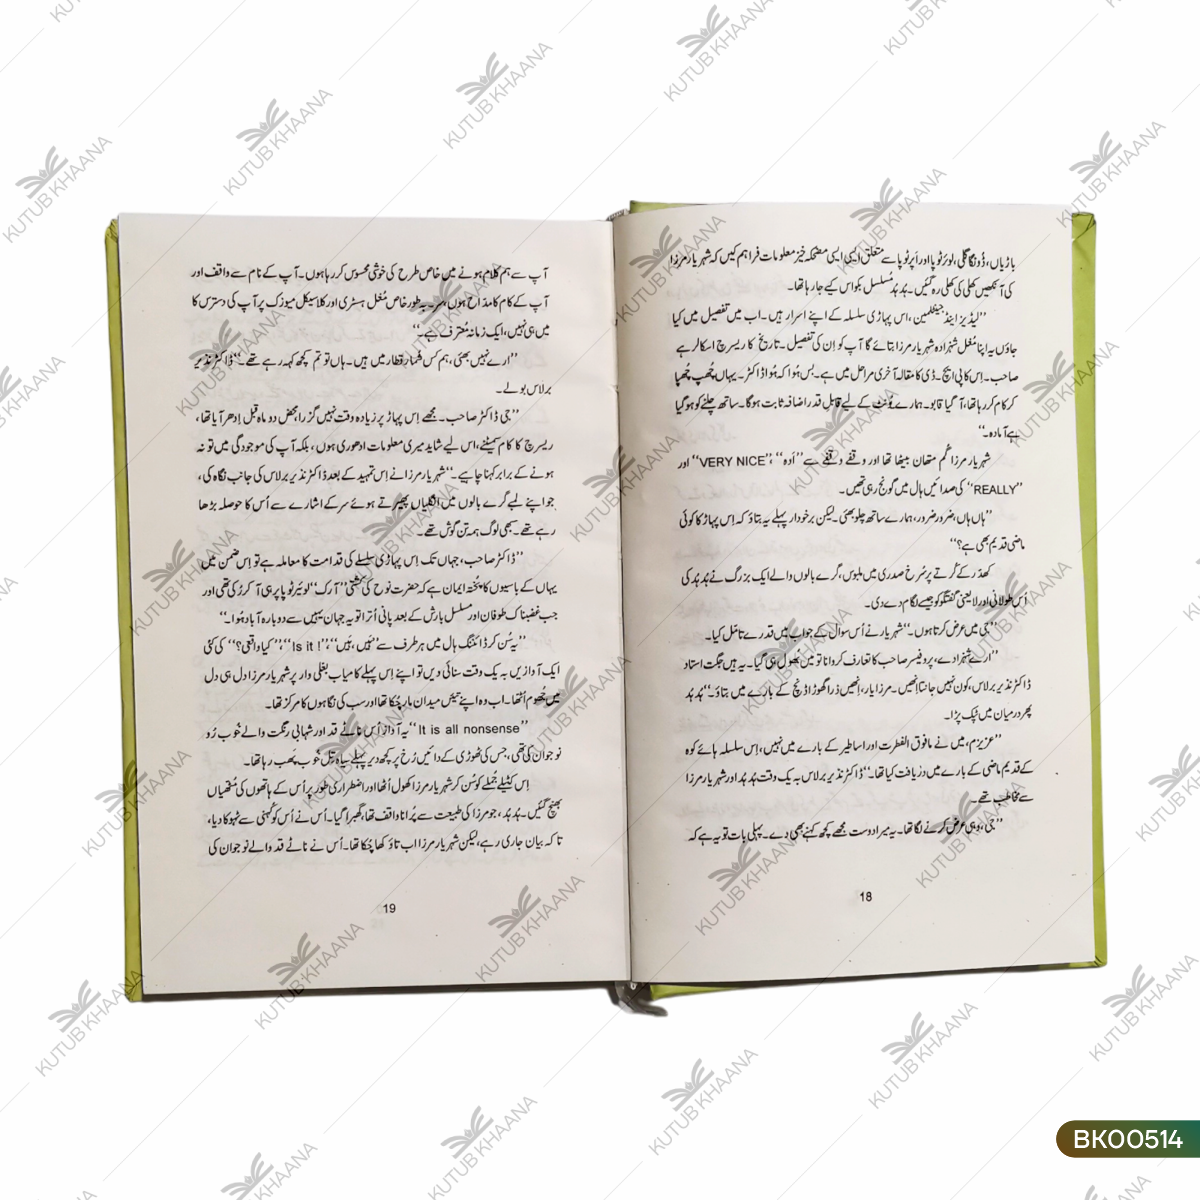 باڑیاں، ڈونگا گلی، لوئر ٹوپا اور اَپر ٹوپا سے متعلق ایسی ایسی مضحکہ خیز معلومات فراہم کیں کہ شہریار مرزا
کی آنکھیں کھلی کی کھلی رہ گئیں۔ ہُدہُد مُسلسل بکواس کیے جا رہا تھا۔
’’لیڈیز اینڈ جینٹلمین، اس پہاڑی سلسلہ کے اپنے اسرار ہیں۔ اب میں تفصیل میں کیا
جاؤں یہ اپنا مُغل شہزادہ شہریار مرزا بتائے گا آپ کو اِن کی تفصیل۔ تاریخ کا ریسرچ اسکالر ہے
صاحب۔ اِس کا پی ایچ۔ ڈی کا مقالہ آخری مراحل میں ہے۔ بس ہُوا کہ ہُوا ڈاکٹر۔ یہاں چُھپ چُھپا
کر کام کر رہا تھا، آ گیا قابو۔ ہمارے یُونٹ کے لیے قابلِ قدر اضافہ ثابت ہو گا۔ ساتھ چلنے کو ہو گیا
ہے آمادہ۔‘‘
شہریار مرزا گُم متھان بیٹھا تھا اور وقفے وقفے سے ’’اَوہ‘‘ ’’VERY NICE‘‘ اور
’’REALLY‘‘ کی صدائیں ہال میں گونج رہی تھیں۔
’’ہاں ہاں، ضرور ضرور، ہمارے ساتھ چلو بھئی۔ لیکن برخوردار پہلے یہ بتاؤ کہ اِس پہاڑ کا کوئی
ماضی قدیم بھی ہے؟‘‘
کھدّر کے کُرتے پر سُرخ صدری میں ملبوس، گرے بالوں والے ایک بزرگ نے ہُدہُد کی
اُس طولانی اور لایعنی گفتگو کو جیسے لگام دے دی۔
’’جی میں عرض کرتا ہوں۔‘‘ شہریار نے اُس سوال کے جواب میں قدرے تامّل کیا۔
’’ارے شہزادے، پروفیسر صاحب کا تعارف کروانا تو میں بھول ہی گیا۔ یہ ہیں جگت استاد
ڈاکٹر نذیر برلاس، کون نہیں جانتا اِنھیں۔ مرزا یار، اِنھیں ذرا گھوڑا ڈنچ کے بارے میں بتاؤ۔‘‘ ہُدہُد
پھر درمیان میں ٹپک پڑا۔
’’عزیزم، میں نے مافوق الفطرت اور اساطیر کے بارے میں نہیں، اِس سلسلہ ہائے کوہ
کے قدیم ماضی کے بارے میں دریافت کیا تھا۔‘‘ ڈاکٹر نذیر برلاس بہ یک وقت ہُدہُد اور شہریار مرزا
سے مخاطب تھے۔
’’جی، وہی عرض کرنے لگا تھا۔ یہ میرا دوست مجھے کچھ کہنے بھی دے۔ پہلی بات تو یہ ہے کہ
18
آپ سے ہم کلام ہونے میں خاص طرح کی خوشی محسوس کر رہا ہوں۔ آپ کے نام سے واقف اور
آپ کے کام کا مدّاح ہوں، سر۔ بہ طور خاص مُغل ہسٹری اور کلاسیکل میوزک پر آپ کی دسترس کا
میں ہی نہیں، ایک زمانہ مُعترف ہے۔‘‘
’’ارے نہیں بھئی، ہم کس شمار قطار میں ہیں۔ ہاں تو تم کچھ کہہ رہے تھے۔‘‘ ڈاکٹر نذیر
برلاس بولے۔
’’جی ڈاکٹر صاحب۔ مجھے اِس پہاڑ پر زیادہ وقت نہیں گزرا، محض دو ماہ قبل اِدھر آیا تھا،
ریسرچ کا کام سمیٹنے، اس لیے شاید میری معلومات ادھوری ہوں، بلکہ آپ کی موجودگی میں تو نہ
ہونے کے برابر کہنا چاہیے۔‘‘ شہریار مرزا نے اِس تمہید کے بعد ڈاکٹر نذیر برلاس کی جانب نگاہ کی،
جو اپنے لمبے گرے بالوں میں انگلیاں پھیرتے ہوئے سر کے اشارے سے اُس کا حوصلہ بڑھا
رہے تھے۔ سبھی لوگ ہمہ تن گوش تھے۔
’’ڈاکٹر صاحب، جہاں تک اِس پہاڑی سلسلے کی قدامت کا معاملہ ہے تو اِس ضمن میں
یہاں کے باسیوں کا پُختہ ایمان ہے کہ حضرت نوح کی کشتی ’’آرک‘‘ لوئیر ٹوپا پر ہی آ کر رُکی تھی اور
جب غضبناک طوفان اور مسلسل بارش کے بعد پانی اُترا تو یہ جہان یہیں سے دوبارہ آباد ہُوا۔‘‘
یہ سُن کر ڈائننگ ہال میں ہر طرف سے ’’ہَیں، ہَیں‘‘، ’’Is it !‘‘، ’’کیا واقعی؟‘‘ کی کئی
ایک آوازیں بہ یک وقت سنائی دیں تو اپنے اِس پہلے کامیاب بغلی وار پر شہریار مرزا دل ہی دل
میں جُھوم اُٹھا۔ اب وہ اپنے تیئں میدان مار چُکا تھا اور سب کی نگاہوں کا مرکز تھا۔
’’It is all nonsense‘‘ یہ آواز اُس ناٹے قد اور شہابی رنگت والے خُوب رُو
نوجوان کی تھی، جس کی ٹھوڑی کے دائیں رُخ پر کچھ دیر پہلے سیاہ تِل خُوب پھب رہا تھا۔
اِس کٹیلے جُملے کو سُن کر شہریار مرزا کھول اُٹھا اور اضطراری طور پر اُس کے ہاتھوں کی مُٹھیاں
بھنچ گئیں۔ ہُدہُد، جو مرزا کی طبیعت سے پُرانا واقف تھا، گھبرا گیا۔ اُس نے اُس کو کُہنی سے ٹہوکا دیا،
تا کہ بیان جاری رہے، لیکن شہریار مرزا اب تاؤ کھا چُکا تھا۔ اُس نے ناٹے قد والے نوجوان کی
19
KUTUB KHAANA
BK00514